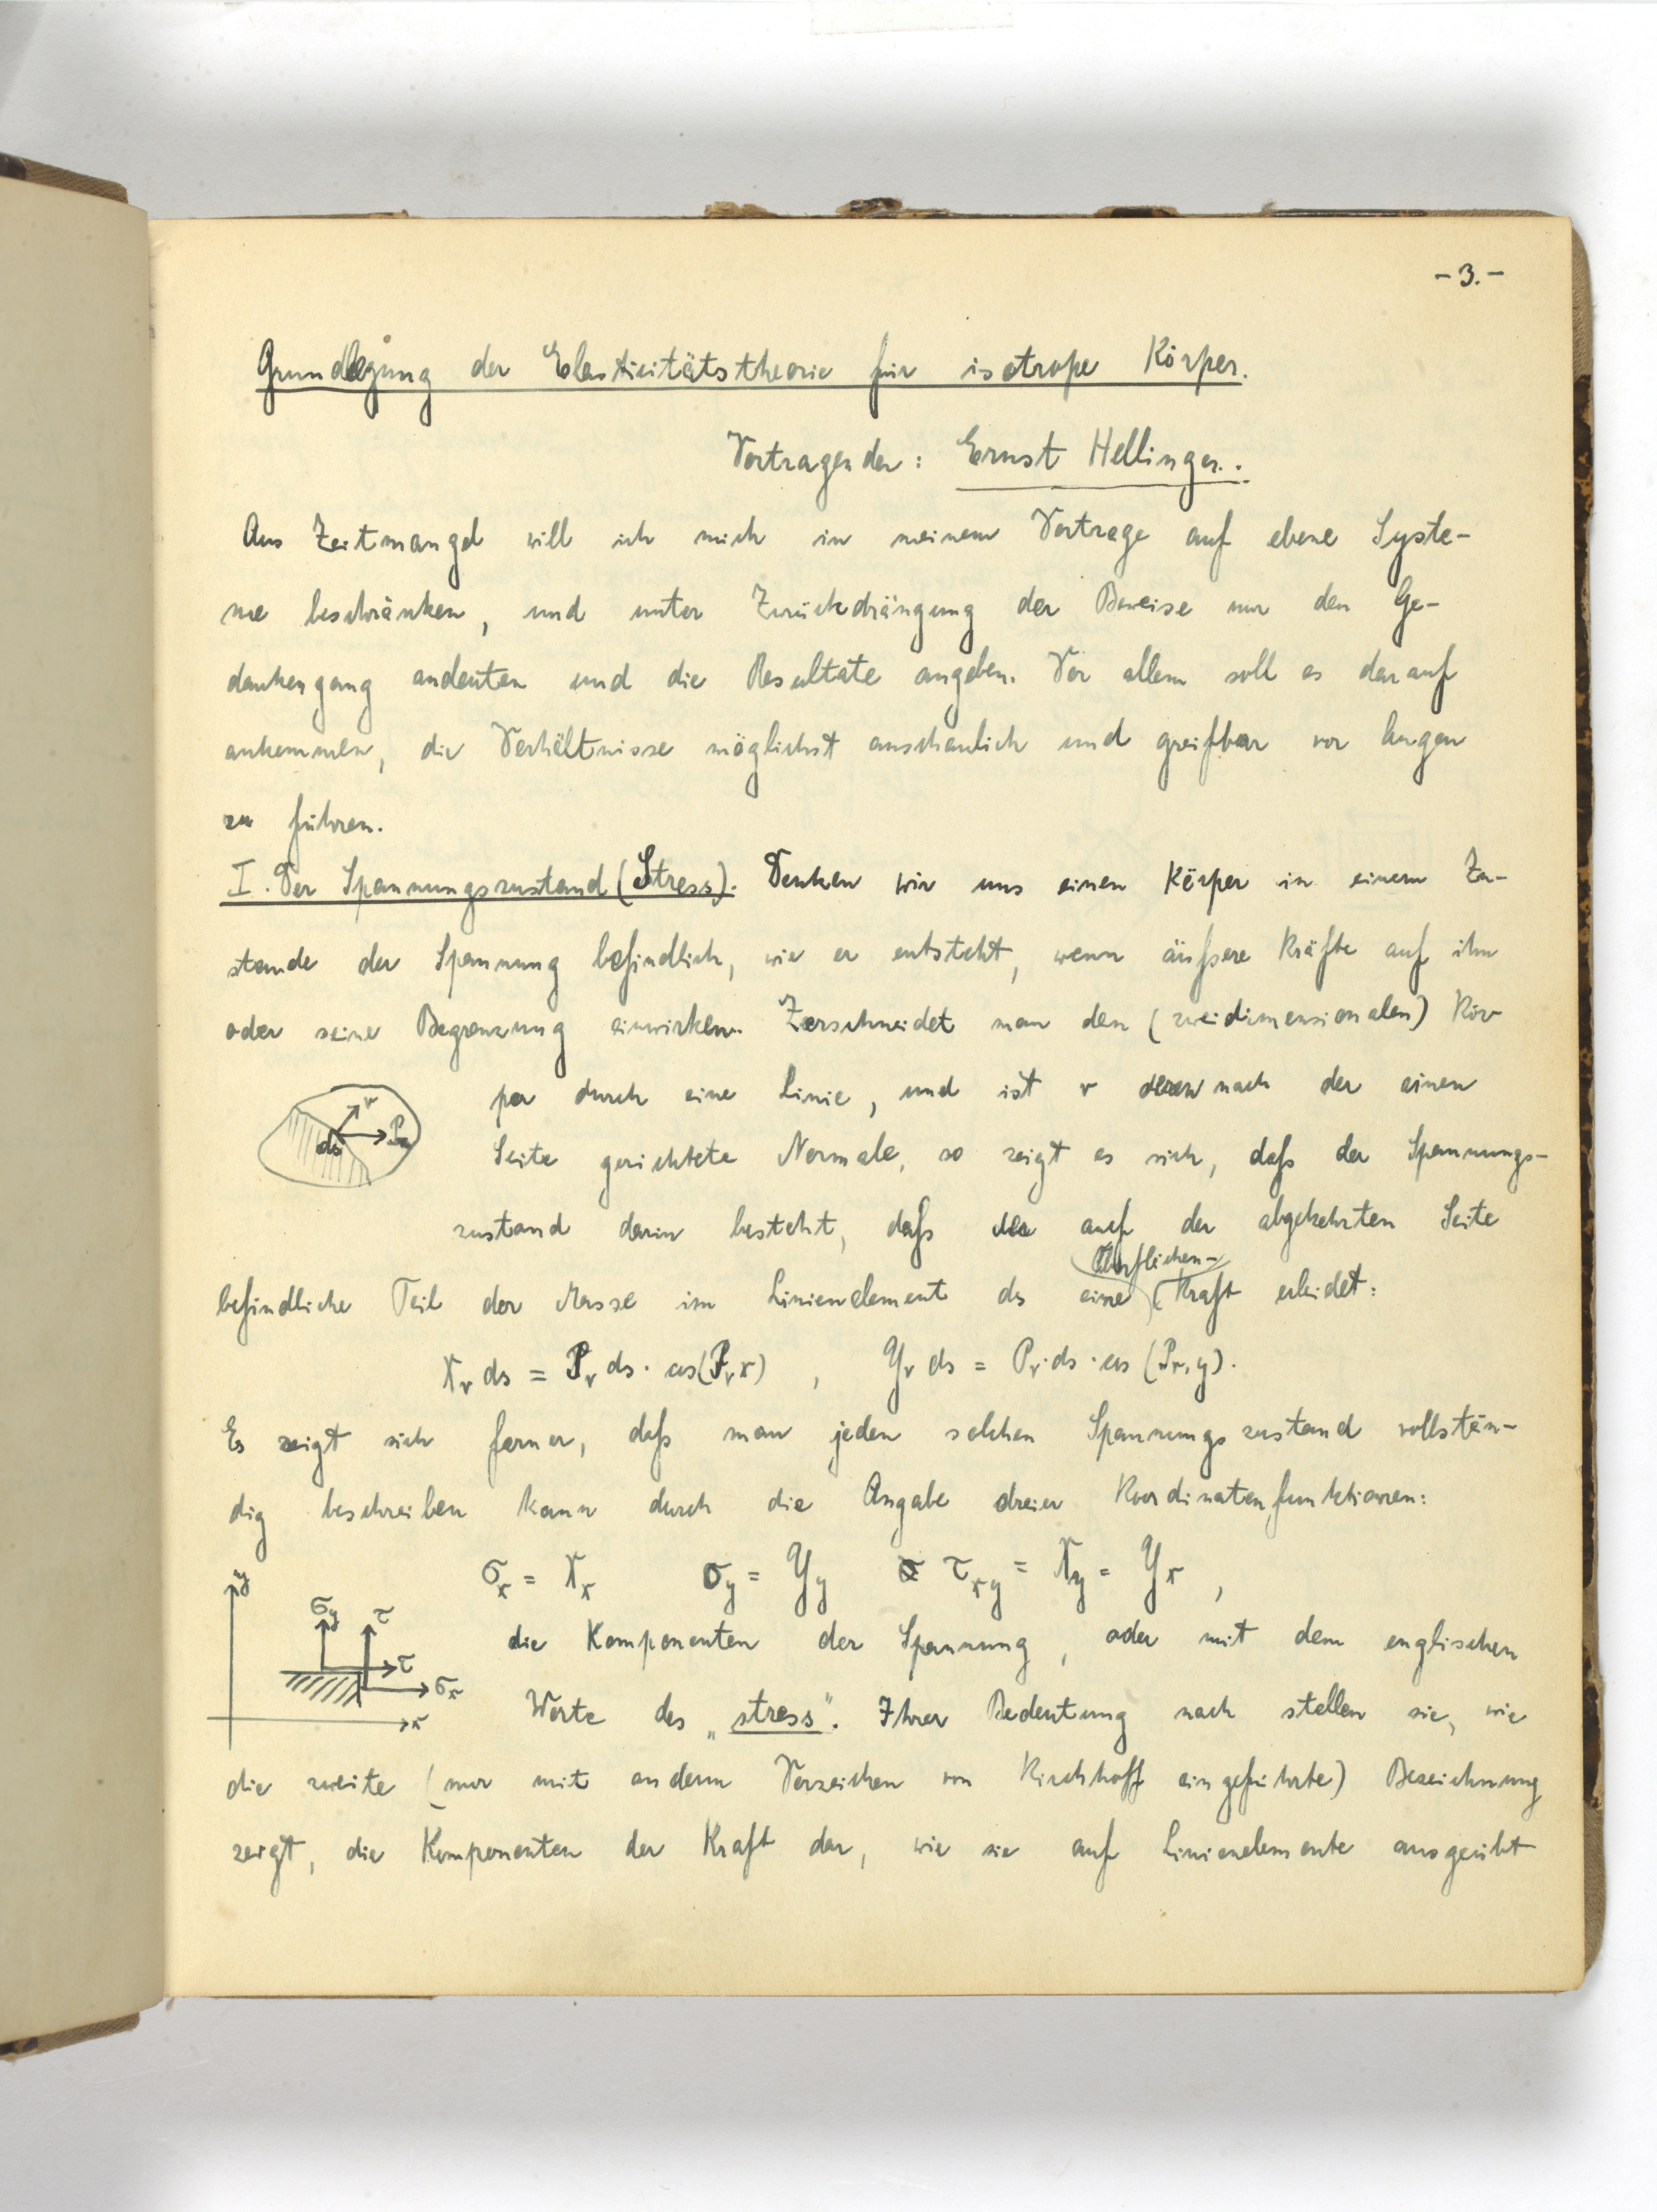 -3.-
Grundlegung der Elasticitätstheorie für isotrope Körper.
Vortragender: Ernst Hellinger.
Aus Zeitmangel will ich mich in meinem Vortrage auf ebene Syste-
me beschränken, und unter Zurückdrängung der Beweise nur den Ge-
dankengang andeuten und die Resultate angeben. Vor allem soll es darauf
ankommen, die Verhältnisse möglichst anschaulich und greifbar vor Augen
zu führen.
I. Der Spannungszustand (Stress). Denken wir uns einen Körper in einem Zu-
stande der Spannung befindlich, wie er entsteht, wenn äußere Kräfte auf ihn
oder seine Begrenzung einwirken. Zerschneidet man den (zweidimensionalen) Kör-
per durch eine Linie, und ist ν deren nach der einen
ν
ds
Pν
Seite gerichtete Normale, so zeigt es sich, daß der Spannungs-
zustand darin besteht, daß der auf der abgekehrten Seite
Oberflächen-
befindliche Teil der Masse im Linienelement ds eine Kraft erleidet:
Xν ds = Pν ds · cos(Pν x) , Yν ds = Pν · ds · cos (Pν, y).
Es zeigt sich ferner, daß man jeden solchen Spannungszustand vollstän-
dig beschreiben kann durch die Angabe dreier Koordinatenfunktionen:
σx = Xx σy = Yy τxy = Xy = Yx ,
y
σy τ
τ
σx
x
die Komponenten der Spannung, oder mit dem englischen
Worte des „stress“. Ihrer Bedeutung nach stellen sie, wie
die zweite (nur mit anderm Vorzeichen von Kirchhoff eingeführte) Bezeichnung
zeigt, die Komponenten der Kraft dar, wie sie auf Linienelemente ausgeübt